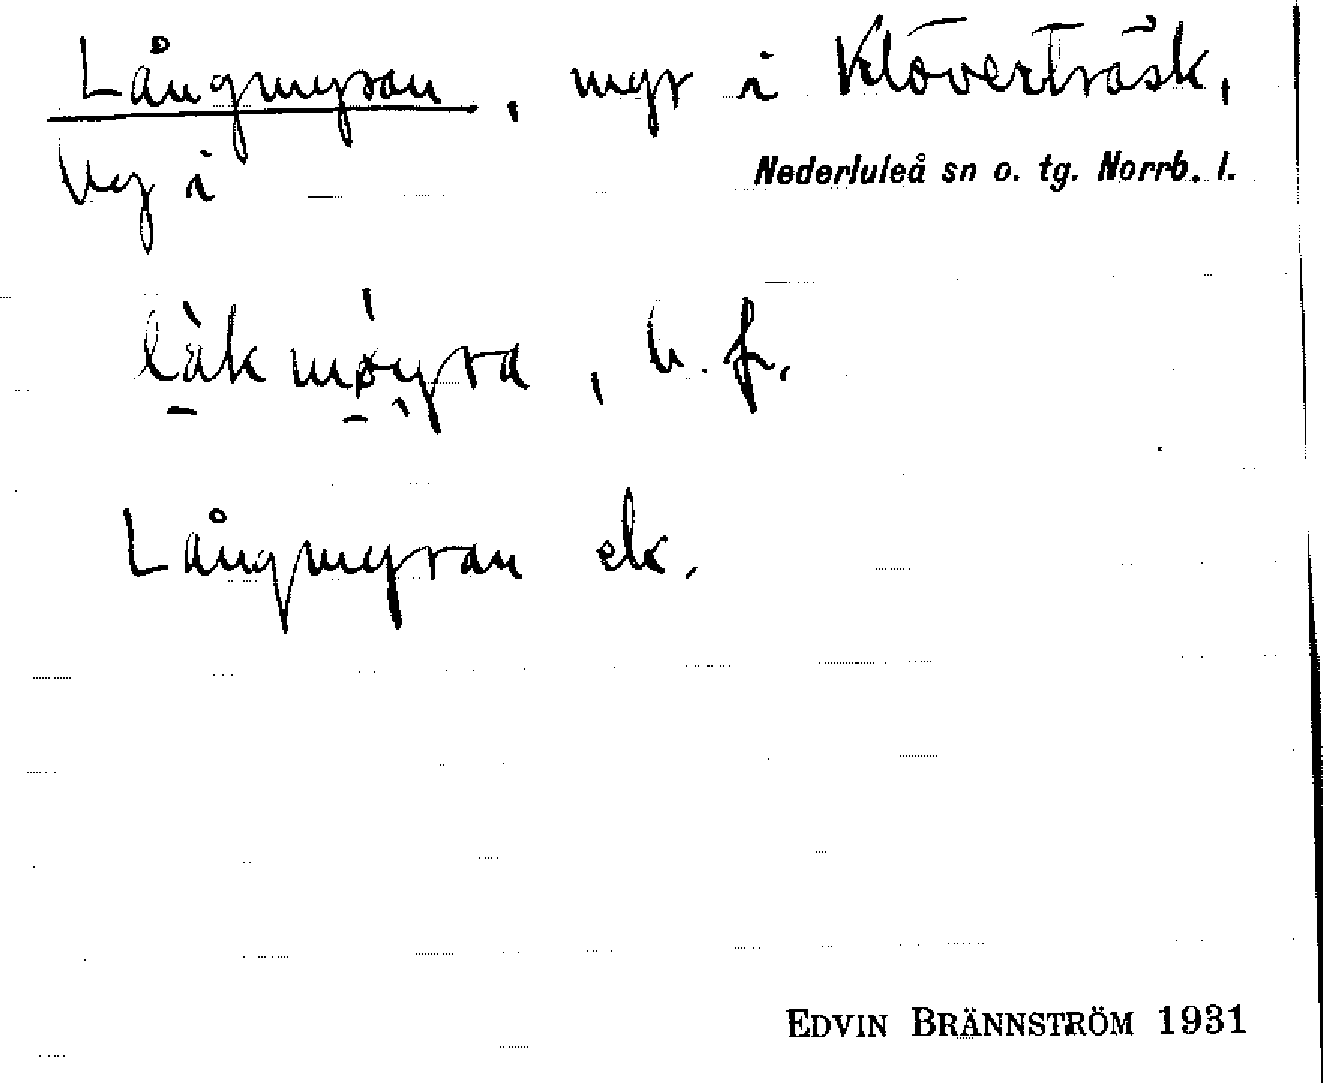 Långmyran, myr i Klöverträsk,
by i Nederluleå sn o. tg. Norrb. l.
låkmøyra, b. f.
Långmyran ek.
EDVIN BRÄNNSTRÖM 1931